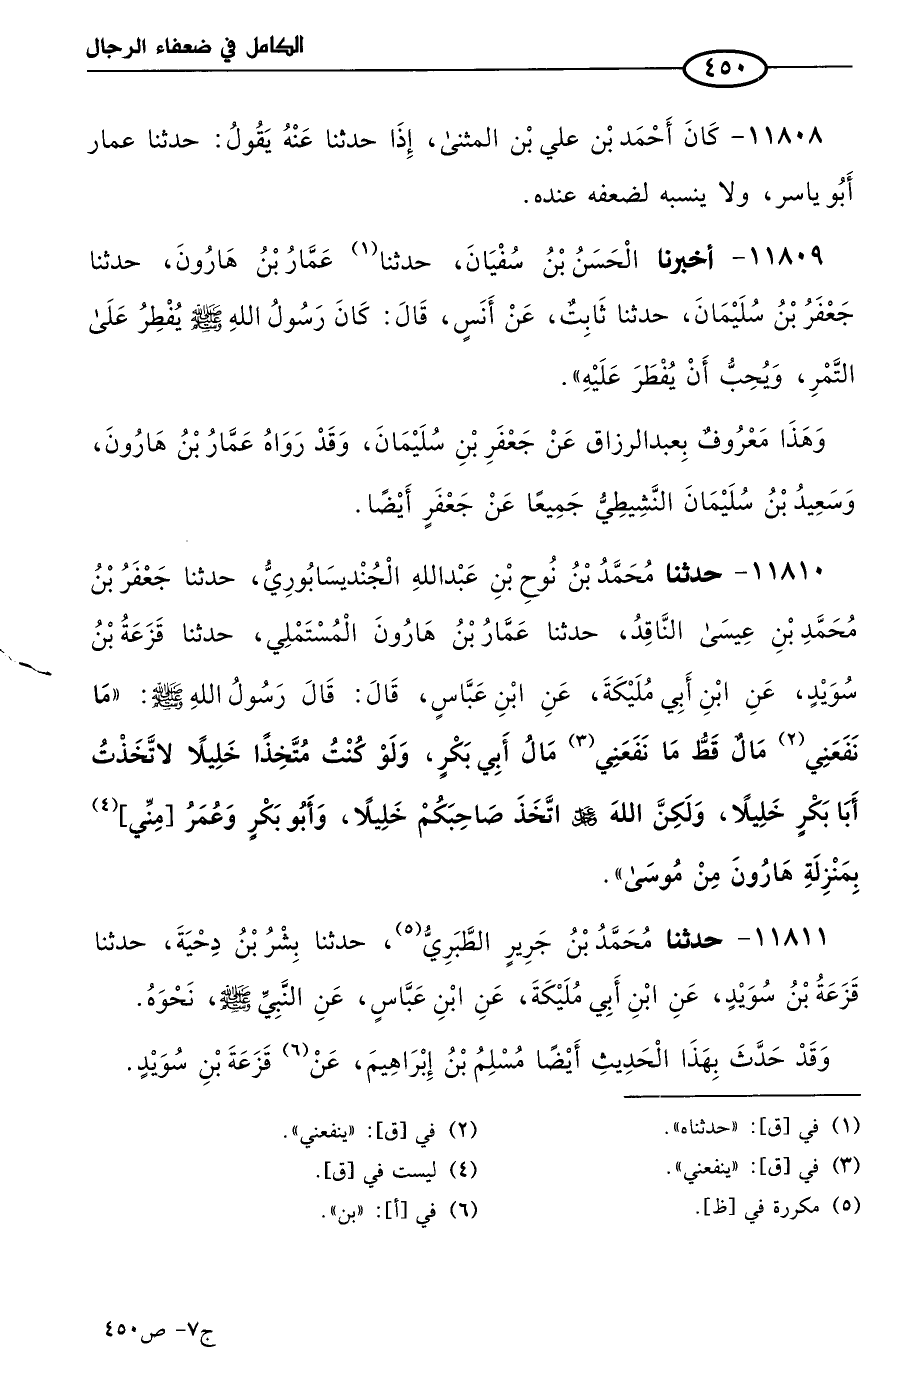 الكامل في ضعفاء الرجال
٤٥٠
١١٨٠٨- كَانَ أَحْمَد بْن علي بْن المثنىٰ، إِذَا حدثنا عَنْهُ يَقُولُ: حدثنا عمار
أَبُو ياسر، ولا ينسبه لضعفه عنده.
١١٨٠٩- أخبرنا الْحَسَنُ بْنُ سُفْيَانَ، حدثنا(١) عَمَّارُ بْنُ هَارُونَ، حدثنا
جَعْفَرُ بْنُ سُلَيْمَانَ، حدثنا ثَابِتٌ، عَنْ أَنَسٍ، قَالَ: كَانَ رَسُولُ اللهِ ﷺ يُفْطِرُ عَلَىٰ
التَّمْرِ، وَيُحِبُّ أَنْ يُفْطَرَ عَلَيْهِ».
وَهَذَا مَعْرُوفٌ بِعبدالرزاق عَنْ جَعْفَرِ بْنِ سُلَيْمَانَ، وَقَدْ رَوَاهُ عَمَّارُ بْنُ هَارُونَ،
وَسَعِيدُ بْنُ سُلَيْمَانَ النَّشِيطِيُّ جَمِيعًا عَنْ جَعْفَرٍ أَيْضًا.
١١٨١٠- حدثنا مُحَمَّدُ بْنُ نُوحِ بْنِ عَبْداللهِ الْجُنْديسَابُورِيُّ، حدثنا جَعْفَرُ بْنُ
مُحَمَّدِ بْنِ عِيسَىٰ النَّاقِدُ، حدثنا عَمَّارُ بْنُ هَارُونَ الْمُسْتَمْلِي، حدثنا قَزَعَةُ بْنُ
سُوَيْدٍ، عَنِ ابْنِ أَبِي مُلَيْكَةَ، عَنِ ابْنِ عَبَّاسٍ، قَالَ: قَالَ رَسُولُ اللهِ ﷺ: «مَا
نَفَعَنِي(٢) مَالٌ قَطُّ مَا نَفَعَنِي(٣) مَالُ أَبِي بَكْرٍ، وَلَوْ كُنْتُ مُتَّخِذًا خَلِيلًا لاتَّخَذْتُ
أَبَا بَكْرٍ خَلِيلًا، وَلَكِنَّ اللهَ ﷿ اتَّخَذَ صَاحِبَكُمْ خَلِيلًا، وَأَبُو بَكْرٍ وَعُمَرُ [مِنِّي](٤)
بِمَنْزِلَةِ هَارُونَ مِنْ مُوسَىٰ».
١١٨١١- حدثنا مُحَمَّدُ بْنُ جَرِيرٍ الطَّبَرِيُّ(٥)، حدثنا بِشْرُ بْنُ دِحْيَةَ، حدثنا
قَزَعَةُ بْنُ سُوَيْدٍ، عَنِ ابْنِ أَبِي مُلَيْكَةَ، عَنِ ابْنِ عَبَّاسٍ، عَنِ النَّبِيِّ ﷺ، نَحْوَهُ.
وَقَدْ حَدَّثَ بِهَذَا الْحَدِيثِ أَيْضًا مُسْلِمُ بْنُ إِبْرَاهِيمَ، عَنْ(٦) قَزَعَةَ بْنِ سُوَيْدٍ.
(١) في [ق]: «حدثناه». (٢) في [ق]: «ينفعني».
(٣) في [ق]: «ينفعني». (٤) ليست في [ق].
(٥) مكررة في [ظ]. (٦) في [أ]: «بن».
ج٧- ص٤٥٠